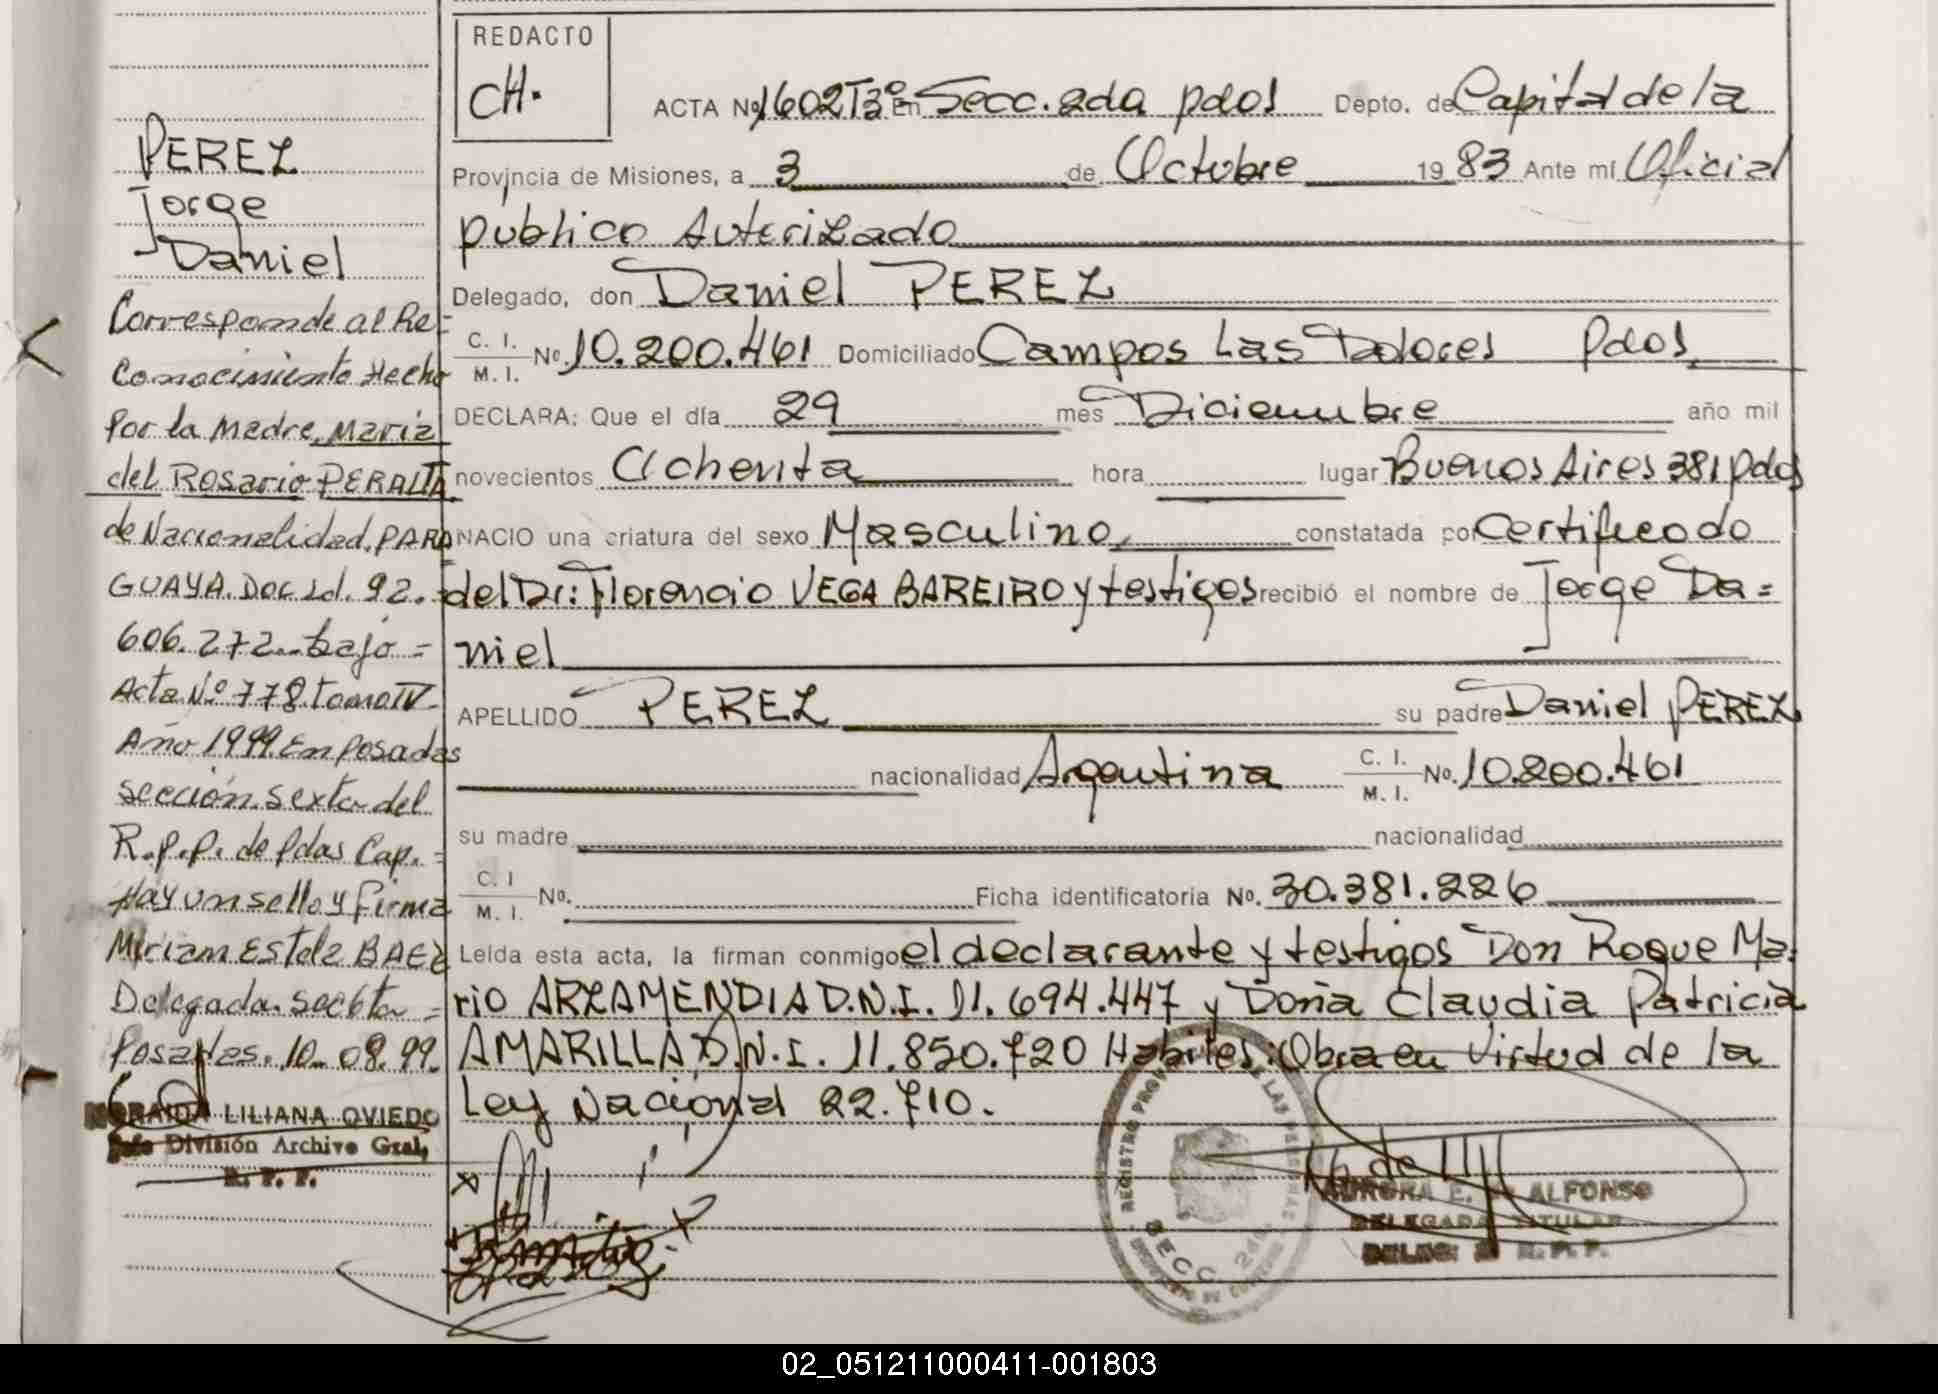 REDACTO
CH.
ACTA Nº 1602 Tº3º En Secc. 2da pdas Depto. de Capital de la
Provincia de Misiones, a 3 de Octubre 1983 Ante mí Oficial
publico Autorizado
Delegado, don Daniel PEREZ
C. I. M. I. No. 10.200.461 Domiciliado Campos Las Dolores Pdas
DECLARA: Que el día 29 mes Diciembre año mil
novecientos Ochenta hora lugar Buenos Aires 381 pdas
NACIO una criatura del sexo Masculino, constatada por Certificado
del Dr: Florencio VEGA BAREIRO y testigos recibió el nombre de Jorge Da=
niel
APELLIDO PEREZ su padre Daniel PEREZ
nacionalidad Argentina C. I. M. I. No. 10.200.461
su madre nacionalidad
C. I M. I. No. Ficha identificatoria No. 30.381.226
Leída esta acta, la firman conmigo el declarante y testigos Don Roque Ma-
rio ARZAMENDIA D.N.I. 11.694.447 y Doña Claudia Patricia
AMARILLA D.N.I. 11.850.720 Habiles: Obra en Virtud de la
Ley Nacional 22.710.
PEREZ
Jorge
Daniel
Corresponde al Re=
Conocimiento Hecho
Por la Madre, Maria
del Rosario PERALTA
de Nacionalidad, PARA
GUAYA. Doc. Id. 92.=
606.272.. bajo =
Acta Nº 778. tomo IV-
Año 1999. En Posadas
sección sexta del
R.P.P. de Pdas Cap. =
Hay un sello y firma
Miriam Estela BAEZ
Delegada. Secc 6ta =
Posadas. 10-08.99.
NORAIDA LILIANA OVIEDO
Jefe División Archivo Gral.
R. P. P.
REGISTRO PROV DE LAS PERSONAS
SECC. 2da.
AURORA E. ALFONSO
DELEGADA TITULAR
DELEG. R. P. P.
02_051211000411-001803